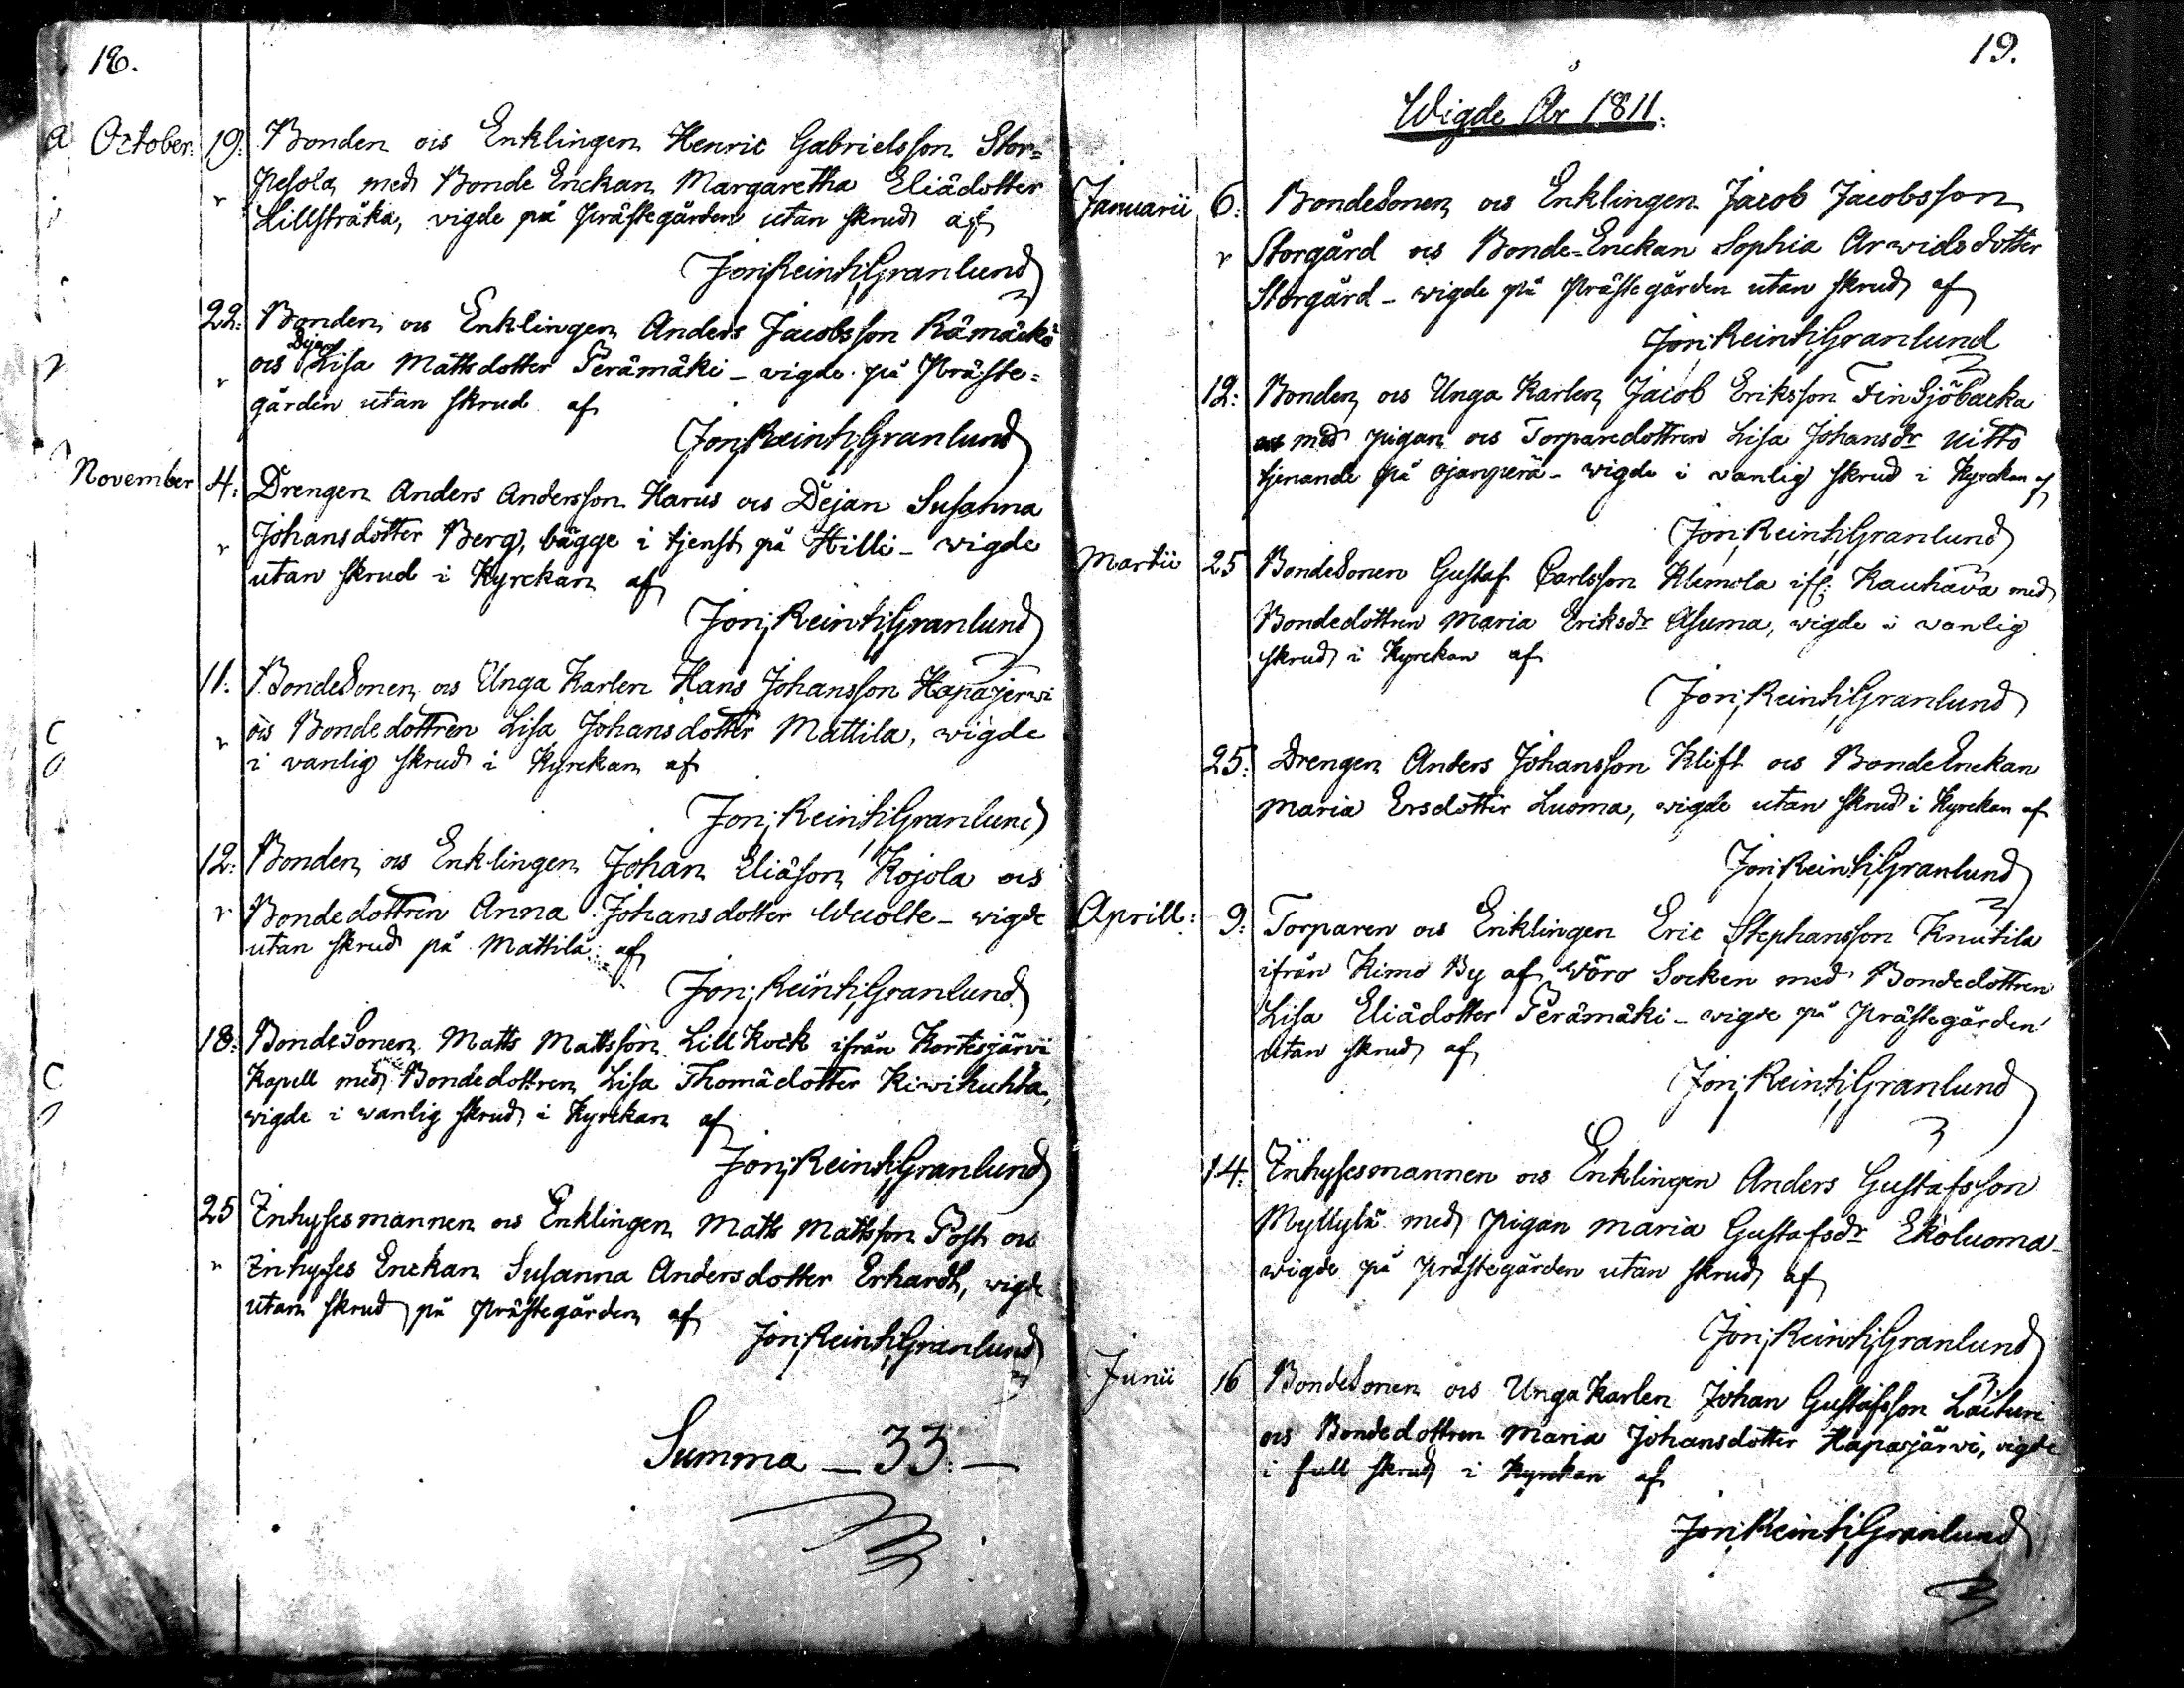 18.
October: 19: Bonden ocs Enklingen Henric Gabrielsson Stor=
Pesola med Bonde Enckan Margaretha Eliædotter
Lillstråka, vigde på Prästegården utan skrud af
Jon; Reinh; Granlund
22: Bonden ocs Enklingen Anders Jacobsson Rämäckö
ocs Dejan Lisa Mattsdotter Perämäki – vigde på Präste=
gården utan skrud af
Jon; Reinh; Granlund
November 4: Drengen Anders Andersson Harus ocs Dejan Susanna
Johansdotter Berg, bägge i tjenst på Hilli – vigde
utan skrud i Kyrckan af
Jon; Reinh; Granlund
11. BondeSonen ocs Unga Karlen Hans Johansson Hapajerwi
ocs Bondedottren Lisa Johansdotter Mattila, vigde
i vanlig skrud i Kyrckan af
Jon; Reinh; Granlund
12: Bonden ocs Enklingen Johan Eliæson Kojola ocs
Bondedottren Anna Johansdotter Wuolte – vigde
utan skrud på Mattila af
Jon; Reinh; Granlund
18: BondeSonen Matts Mattsson Lill Kock ifrån Kortesjärvi
Kapell med Bondedottren Lisa Thomædotter Kiwihuhta,
vigde i vanlig skrud i Kyrckan af
Jon; Reinh; Granlund
25 Inhysesmannen ocs Enklingen Matts Mattsson Post ocs
Inhyses Enckan Susanna Andersdotter Erhardt, vigde
utan skrud på Prästegården af
Jon; Reinh; Granlund
Summa – 33: –
19.
Wigde År 1811:
Januarii 6: BondeSonen ocs Enklingen Jacob Jacobsson
Storgård ocs Bonde=Enckan Sophia Arwidsdotter
Storgård – vigde på Prästegården utan skrud af
Jon; Reinh; Granlund
12: Bonden ocs Unga Karlen Jacob Eriksson FinSjöbacka
med pigan ocs Torparedottren Lisa Johansdr Uitto
tjenande på Ojanperä – vigde i vanlig skrud i Kyrckan af
Jon; Reinh; Granlund
Martii 25 BondeSonen Gustaf Carlsson Klemola ifr: Kauhava med
Bondedottren Maria Eriksdr Asuma, vigde i vanlig
skrud i Kyrckan af
Jon; Reinh; Granlund
25: Drengen Anders Johansson Klift ocs BondeEnckan
Maria Ersdotter Luoma, vigde utan skrud i Kyrckan af
Jon; Reinh; Granlund
Aprill: 9: Torparen ocs Enklingen Eric Stephansson Knutila
ifrån Kimo By af Wörо Socken med Bondedottren
Lisa Eliædotter Perämäki – vigde på Prästegården
utan skrud af
Jon; Reinh; Granlund
14: Inhysesmannen ocs Enklingen Anders Gustafsson
Myllylä med Pigan Maria Gustafsdr Ekoluoma –
vigde på Prästegården utan skrud af
Jon; Reinh; Granlund
Junii 16 BondeSonen ocs Unga Karlen Johan Gustafsson Laituri
ocs Bondedottren Maria Johansdotter Hapajärvi, vigde
i full skrud i Kyrckan af
Jon; Reinh; Granlund